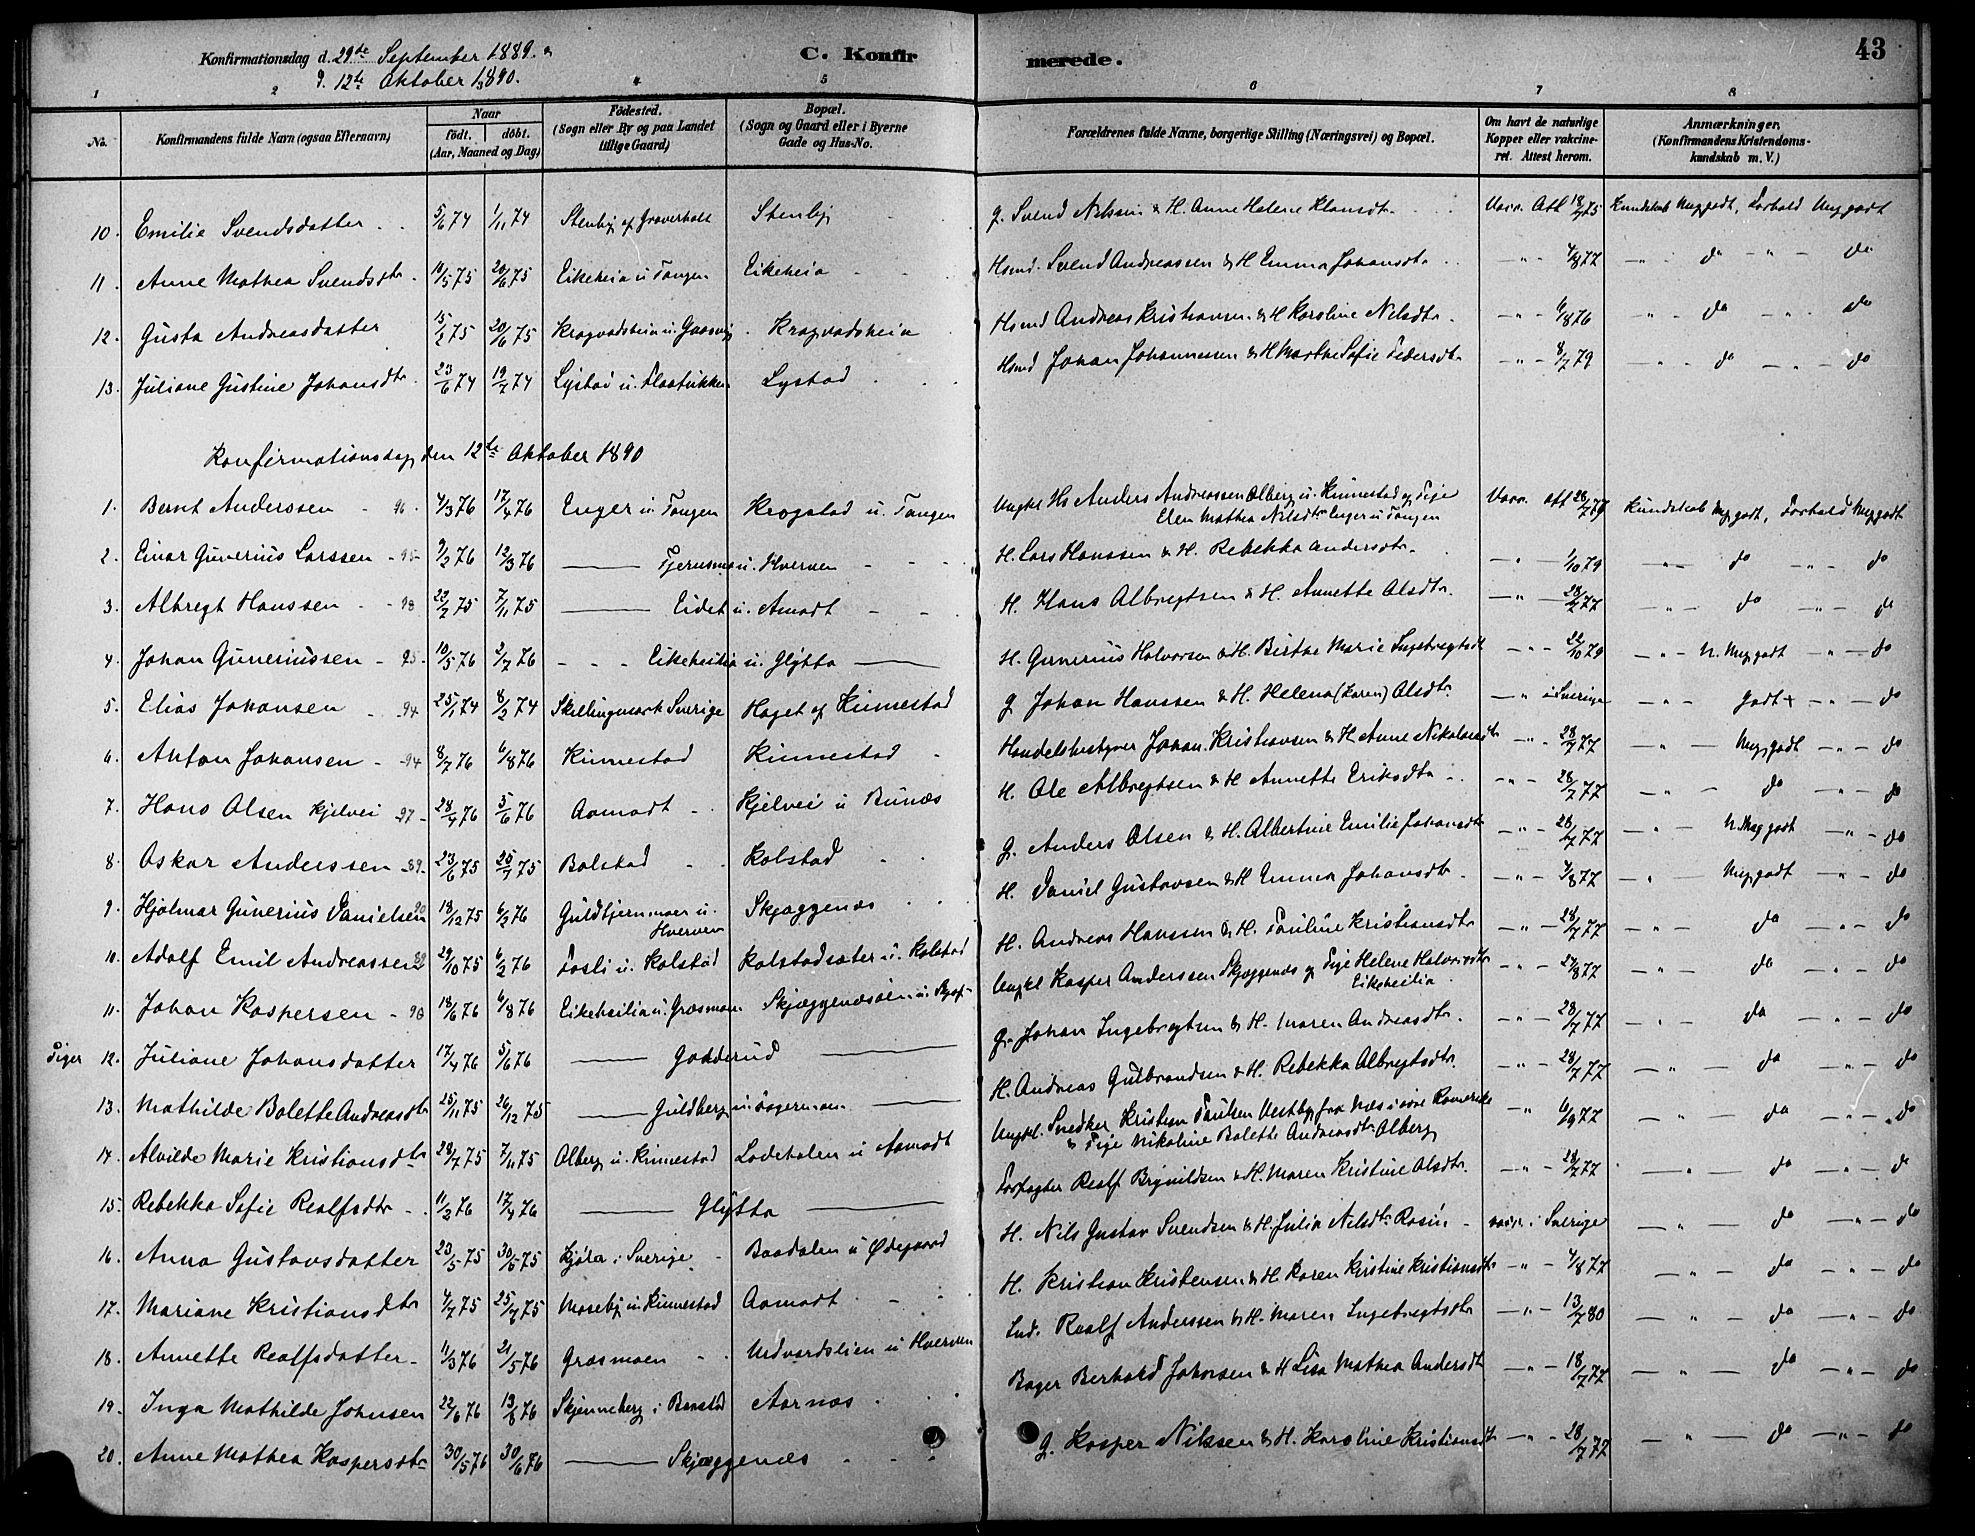 Konfirmationsdag d. 29de September 1889. C. Konfirmerede. 43
12te Oktober 1890.
1 2 4 5 6 7 8
No. Konfirmandens fulde Navn (ogsaa Efternavn) Naar født. døbt. (Aar, Maaned og Dag) Fødested. (Sogn eller By og paa Landet tillige Gaard) Bopæl. (Sogn og Gaard eller i Byerne Gade og Hus-No. Forældrenes fulde Navne, borgerlige Stilling (Næringsvei) og Bopæl. Om havt de naturlige Kopper eller vakcineret. Attest herom. Anmærkninger, (Konfirmandens Kristendomskundskab m. V.)
10. Emilie Svendsdatter 5/6 74 1/11 74 Stenby af Graverholt Stenby g. Svend Nilsen & H. Anne Helene Klansdtr. Vacc. Att 18/7 75 Kundskab Meg godt, Forhold Meg godt
11. Anne Mathea Svendsdtr. 10/5 75 20/6 75 Eikeheia u. Tangen Eikeheia Hsmd. Svend Andreassen & H Emma Johansdtr. 4/8 77 do do
12. Gusta Andreasdatter 15/2 75 20/6 75 Krogvadsheia u. Gaasvig Krogvadsheia Hsmd Andreas Kristiansen & H Karoline Nilsdtr. 6/8 76 do do
13. Juliane Gustine Johansdtr. 23/6 74 19/7 74 Lystad u. Flaatvikken Lystad Hsmd Johan Johannessen & H Marthe Sofie Pedersdtr. 8/7 79 do do
Konfirmationsdag den 12te Oktober 1890
1. Bernt Anderssen - 96 - 4/3 76 17/4 76 Enger u. Tangen Krogstad u. Tangen Ungkl Hs Anders Andreassen Olberg u. Kinnestad og Pige Elen Mathea Nilsdtr Enger u Tangen Vacc. att 28/7 79 Kundskab Meg godt, Forhold Meg godt
2. Einar Gunerius Larssen - 95 - 9/2 76 12/3 76 Tjernsmo u. Hverven H. Lars Hanssen & H. Rebekka Andersdtr. 1/10 79 do do
3. Albregt Hanssen - 98 22/2 75 7/11 75 Eidet u. Amodt H. Hans Albregtsen & H. Annette Olsdtr. 28/7 77 do do
4. Johan Guneriussen - 95 - 10/5 76 2/7 76 Eikeheilia u. Glytta H. Gunerius Halvorsen & H. Birthe Marie Ingebregtsdtr 22/10 79 N. Meg godt do
5. Elias Johansen - 94 25/1 74 8/2 74 Skillingmark Sverige Haget af Kinnestad g Johan Hanssen & H. Helena (Karen) Olsdtr. i Sverige Godt + do
6. Anton Johansen - 94 8/7 76 6/8 76 Kinnestad Kinnestad Handelsbestyrer Johan Kristiansen & H Anne Nikolaisdtr 28/7 77 Meg godt do
7. Hans Olsen Kjelvei 97 - 28/4 76 5/6 76 Aamodt Kjelvei u Bunæs H. Ole Albregtsen & H Annette Eriksdtr 28/7 77 do do
8. Oskar Anderssen - 89 - 23/6 75 25/7 75 Bolstad Kolstad g. Anders Olsen & H. Albertine Emilie Johansdtr 28/7 77 N. Meg godt do
9. Hjalmar Gunerius Danielsen 90 18/12 75 6/2 76 Guldtjernmoen u. Hverven Skjæggenæs H. Daniel Gustavsen & H Emma Johansdtr 4/8 77 Meg godt do
10. Adolf Emil Andreassen 29/10 75 6/2 76 Fosli u. Kolstad Kolstadsæter u. Kolstad H. Andreas Hanssen & H. Pauline Kristiansdtr 28/7 77 do do
11. Johan Kaspersen - 90 18/6 76 6/8 76 Eikeheilia u. Græsmoen Skjæggenæsøen u. Ungkl Kasper Anderssen Skjæggenæs og Pige Helene Halvorsdtr Eikeheilia 27/8 77 do do
Piger 12. Juliane Johansdatter 17/4 76 5/6 76 Godderud g. Johan Ingebregtsen & H. Maren Andreasdtr. 28/7 77 do do
13. Mathilde Bolette Andreasdtr 25/11 75 26/12 75 Guldberg u. H. Andreas Gulbrandsen & H. Rebekka Albregtsdtr. 28/7 77 do do
14. Alvilde Marie Kristiansdtr 28/7 75 7/11 75 Olberg u. Kinnestad Ladehalen u Aamodt Ungkl. Snedker Kristian Paulsen Vestby fra Næs i øvre Romerike & Pige Nikoline Bolette Andreasdtr Olberg 6/9 77 do do
15. Rebekka Sofie Realfsdtr 11/2 76 17/4 76 Glytta Forpagter Realf Brynildsen & H. Maren Kristine Olsdtr. 28/7 77 do do
16. Anna Gustavsdatter 23/5 75 30/5 75 Kjøla i Sverige Baadalen u Ødegaard H. Nils Gustav Svendsen & H. Julia Nilsdtr Rosin vacc. i Sverige do do
17. Mariane Kristiansdtr 4/7 75 25/7 75 Moseby u. Kinnestad Aamodt H. Kristian Kristensen & H Karen Kristine Kristiansdtr 4/8 77 do do
18. Annette Realfsdatter 11/3 76 21/5 76 Græsmoen Udvardslien u Hverven Ind. Realf Anderssen & H. Maren Ingebregtsdtr 13/7 80 do do
19. Inga Mathilde Johnsen 22/6 76 13/8 76 Skjenneberg i Borstad Aarnæs Bager Berhard Johnsen & H Lisa Mathea Andersdtr 18/7 77 do do
20. Anne Mathea Kaspersdtr 30/5 76 30/6 76 Skjæggenæs g. Kasper Nilssen & H. Karoline Kristiansdtr 28/7 77 do do